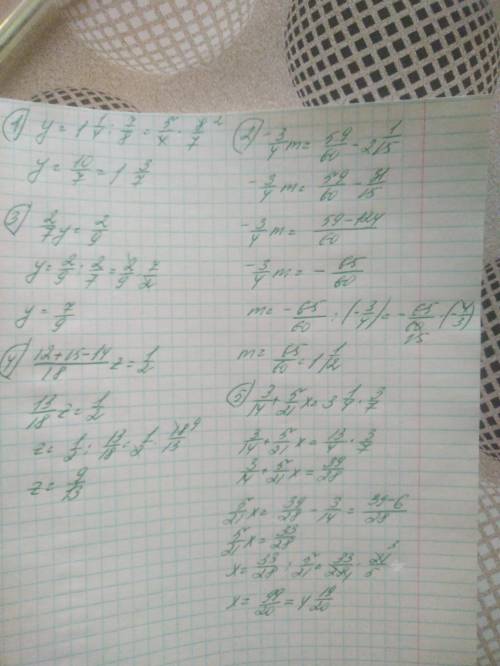 1) y = 1 1/4 : 7/8 = 5/4 · 8/7 2
y = 10/7 = 1 3/7
3) 2/7 y = 2/9
y = 2/9 : 2/7 = 2/9 · 7/2
y = 7/9
4) (12+15-14)/18 z = 1/2
13/18 z = 1/2
z = 1/2 : 13/18 = 1/2 · 18/13 9
z = 9/13
2) -3/4 m = 59/60 - 2 1/15
-3/4 m = 59/60 - 31/15
-3/4 m = (59-124)/60
-3/4 m = - 65/60
m = - 65/60 : (-3/4) = - 65/60 · (-4/3) 15
m = 65/60 = 1 1/12
5) 3/14 + 5/21 x = 3 1/4 · 3/7
3/14 + 5/21 x = 13/4 · 3/7
3/14 + 5/21 x = 39/28
5/21 x = 39/28 - 3/14 = (39-6)/28
5/21 x = 33/28
x = 33/28 : 5/21 = 33/28 · 21/5 3
x = 99/20 = 4 19/20